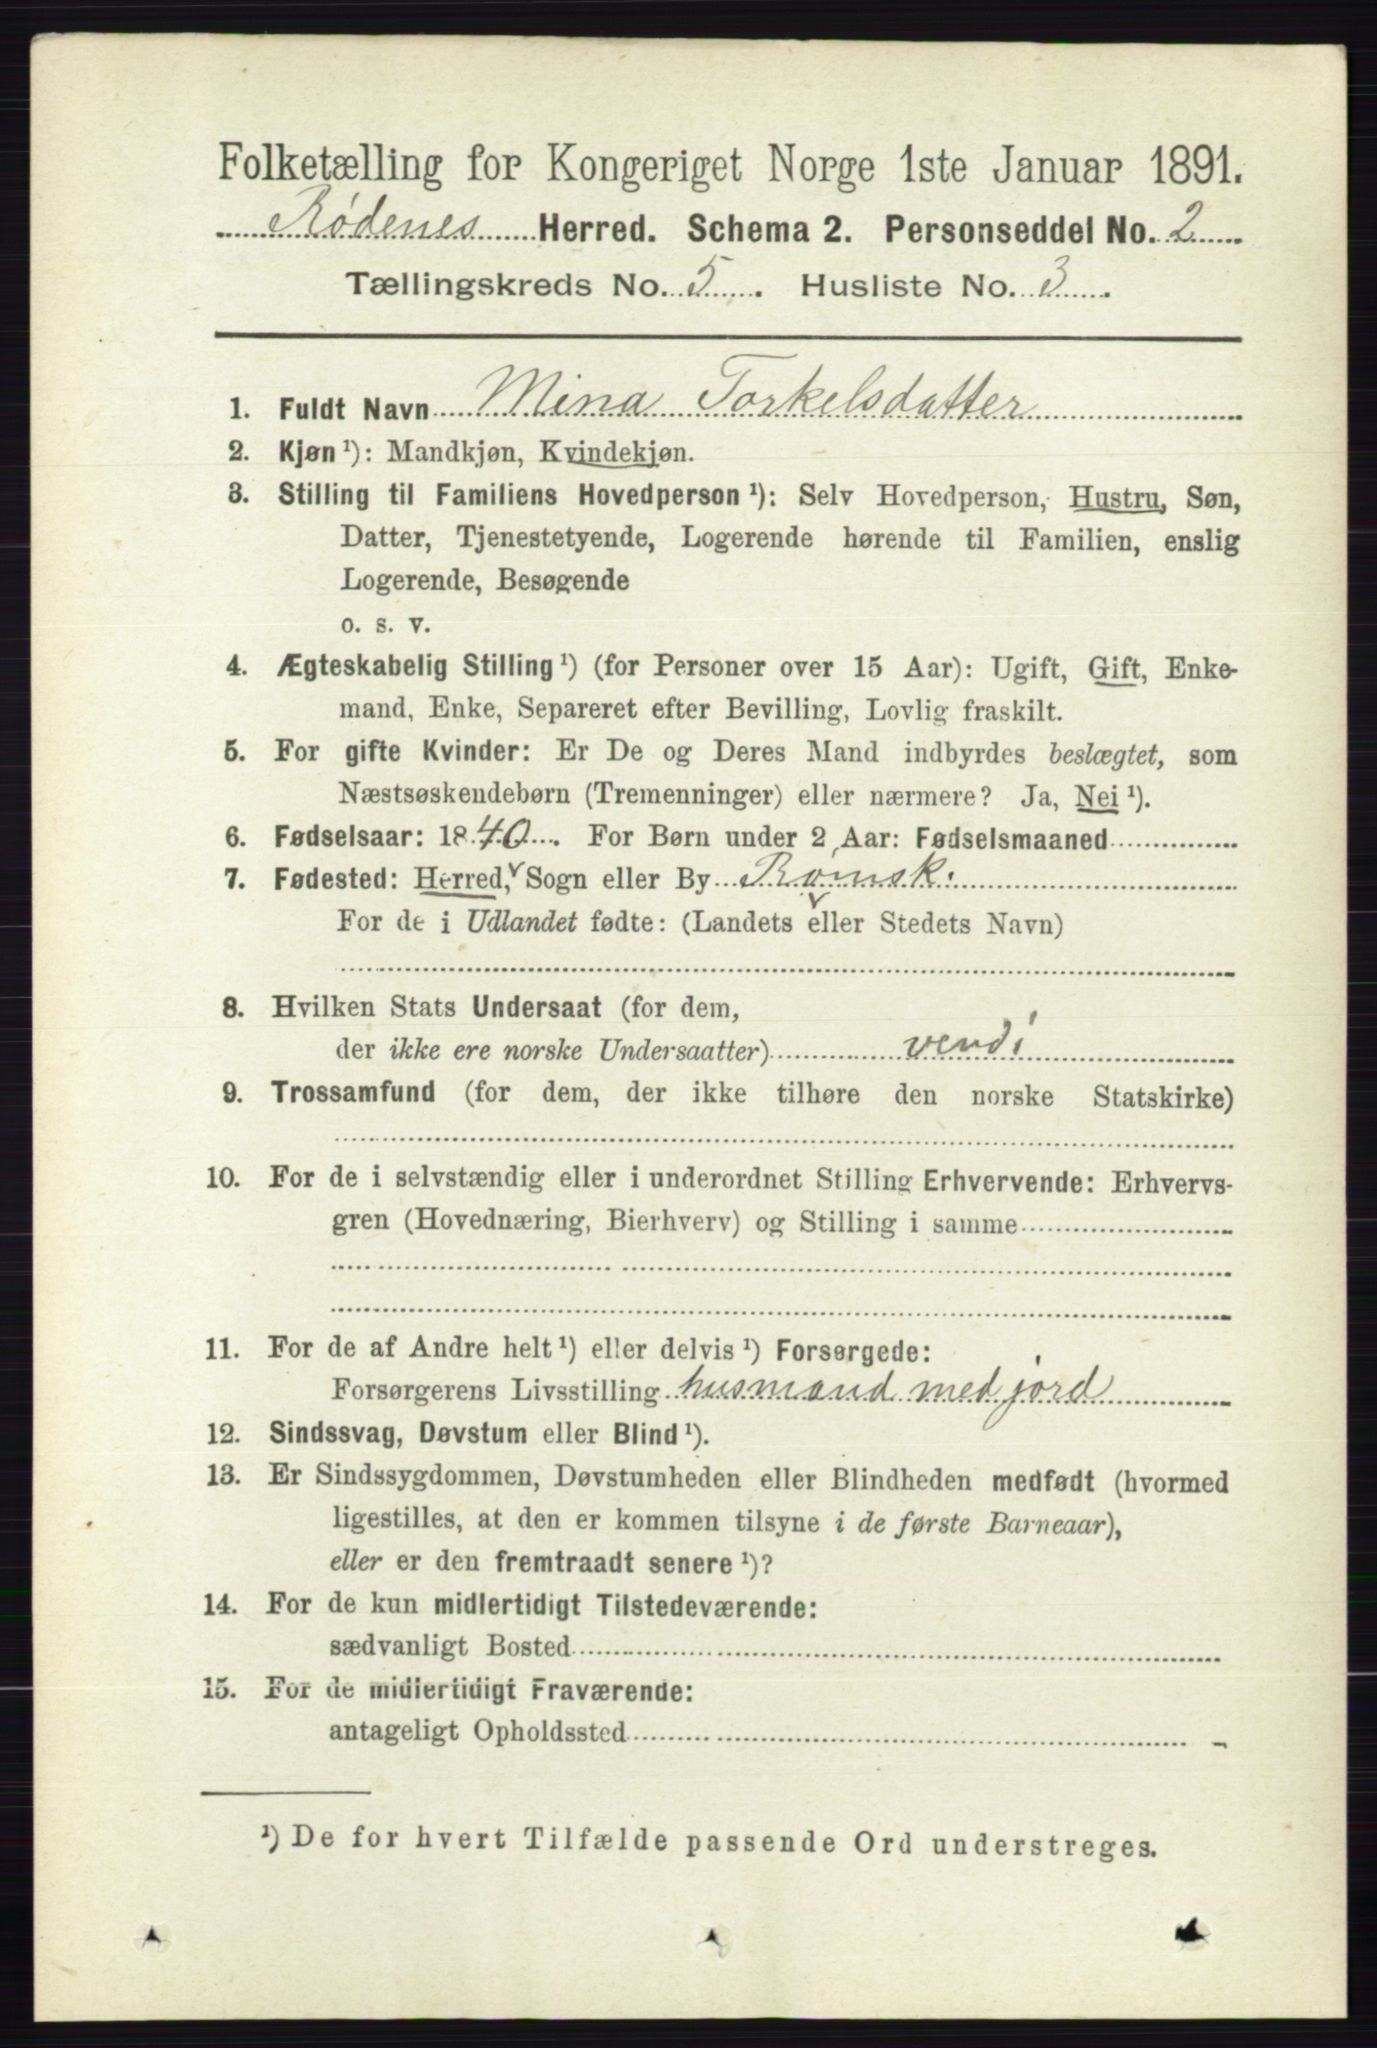 Folketælling for Kongeriget Norge 1ste Januar 1891.
Rødenes Herred. Schema 2. Personseddel No. 2
Tællingskreds No. 5. Husliste No. 3.
1. Fuldt Navn Mina Torkelsdatter
2. Kjøn ¹): Mandkjøn, Kvindekjøn.
3. Stilling til Familiens Hovedperson ¹): Selv Hovedperson, Hustru, Søn,
Datter, Tjenestetyende, Logerende hørende til Familien, enslig
Logerende, Besøgende
o. s. v.
4. Ægteskabelig Stilling ¹) (for Personer over 15 Aar): Ugift, Gift, Enke-
mand, Enke, Separeret efter Bevilling, Lovlig fraskilt.
5. For gifte Kvinder: Er De og Deres Mand indbyrdes beslægtet, som
Næstsøskendebørn (Tremenninger) eller nærmere? Ja, Nei ¹).
6. Fødselsaar: 1840. For Børn under 2 Aar: Fødselsmaaned
7. Fødested: Herred, Sogn eller By Rømsk.
For de i Udlandet fødte: (Landets eller Stedets Navn)
8. Hvilken Stats Undersaat (for dem,
der ikke ere norske Undersaatter)
9. Trossamfund (for dem, der ikke tilhøre den norske Statskirke)
10. For de i selvstændig eller i underordnet Stilling Erhvervende: Erhvervs-
gren (Hovednæring, Bierhverv) og Stilling i samme
11. For de af Andre helt ¹) eller delvis ¹) Forsørgede:
Forsørgerens Livsstilling husmand med jord
12. Sindssvag, Døvstum eller Blind ¹).
13. Er Sindssygdommen, Døvstumheden eller Blindheden medfødt (hvormed
ligestilles, at den er kommen tilsyne i de første Barneaar),
eller er den fremtraadt senere ¹)?
14. For de kun midlertidigt Tilstedeværende:
sædvanligt Bosted
15. For de midlertidigt Fraværende:
antageligt Opholdssted
¹) De for hvert Tilfælde passende Ord understreges.